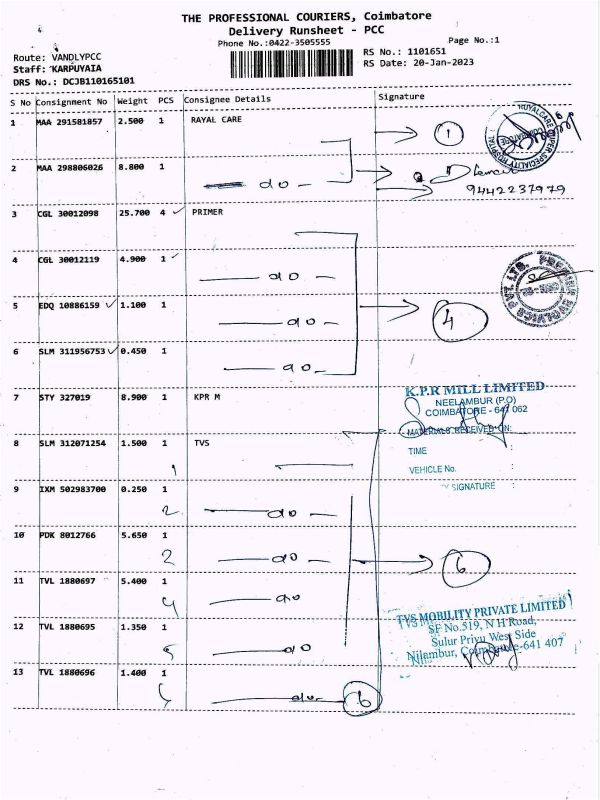 THE PROFESSIONAL COURIERS, Coimbatore
Delivery Runsheet - PCC
Phone No.:0422-3505555
Page No.:1
Route: VANDLYPCC
RS No.: 1101651
Staff: KARPUYAIA
RS Date: 20-Jan-2023
DRS No.: DCJB110165101
S No Consignment No Weight PCS Consignee Details Signature
1 MAA 291581857 2.500 1 RAYAL CARE 1
2 MAA 298806026 8.800 1 do
9442237979
3 CGL 30012098 25.700 4 ✓ PRIMER
4 CGL 30012119 4.900 1 ✓ do
5 EDQ 10886159 ✓ 1.100 1 do 4
6 SLM 311956753 ✓ 0.450 1 do
7 STY 327019 8.900 1 KPR M
K.P.R MILL LIMITED
NEELAMBUR (P.O)
COIMBATORE - 641 062
MATERIALS RECEIVED ON:
TIME :
VEHICLE No. :
SIGNATURE :
8 SLM 312071254 1.500 1 TVS
1
9 IXM 502983700 0.250 1
2 do
10 PDK 8012766 5.650 1
2 do 6
11 TVL 1880697 5.400 1
4 do
12 TVL 1880695 1.350 1
5 do
TVS MOBILITY PRIVATE LIMITED
SF No.519, N H Road,
Sulur Privu West Side
Nilambur, Coimbatore-641 407
13 TVL 1880696 1.400 1
do 6